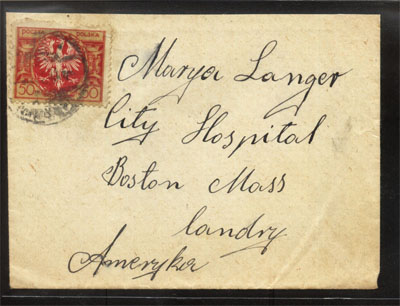 POCZTA POLSKA
50 50
Marya Langer
City Hospital
Boston Mass
landry
Ameryka